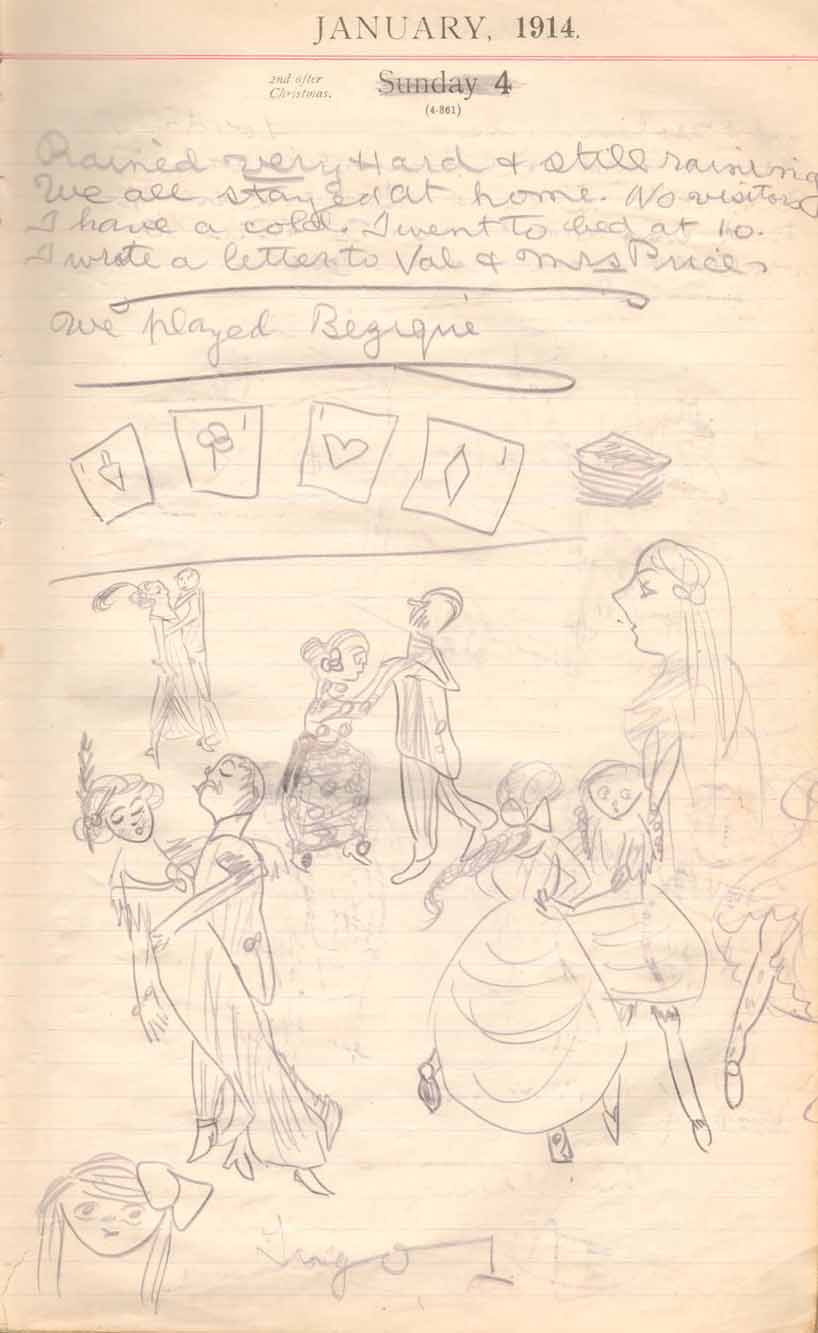 JANUARY, 1914.
2nd after
Christmas.
Sunday 4
(4-361)
Rained very Hard & still raining
We all stayed at home. No visitors
I have a cold. I went to bed at 10.
I wrote a letter to Val & Mrs Price
We played Bezique